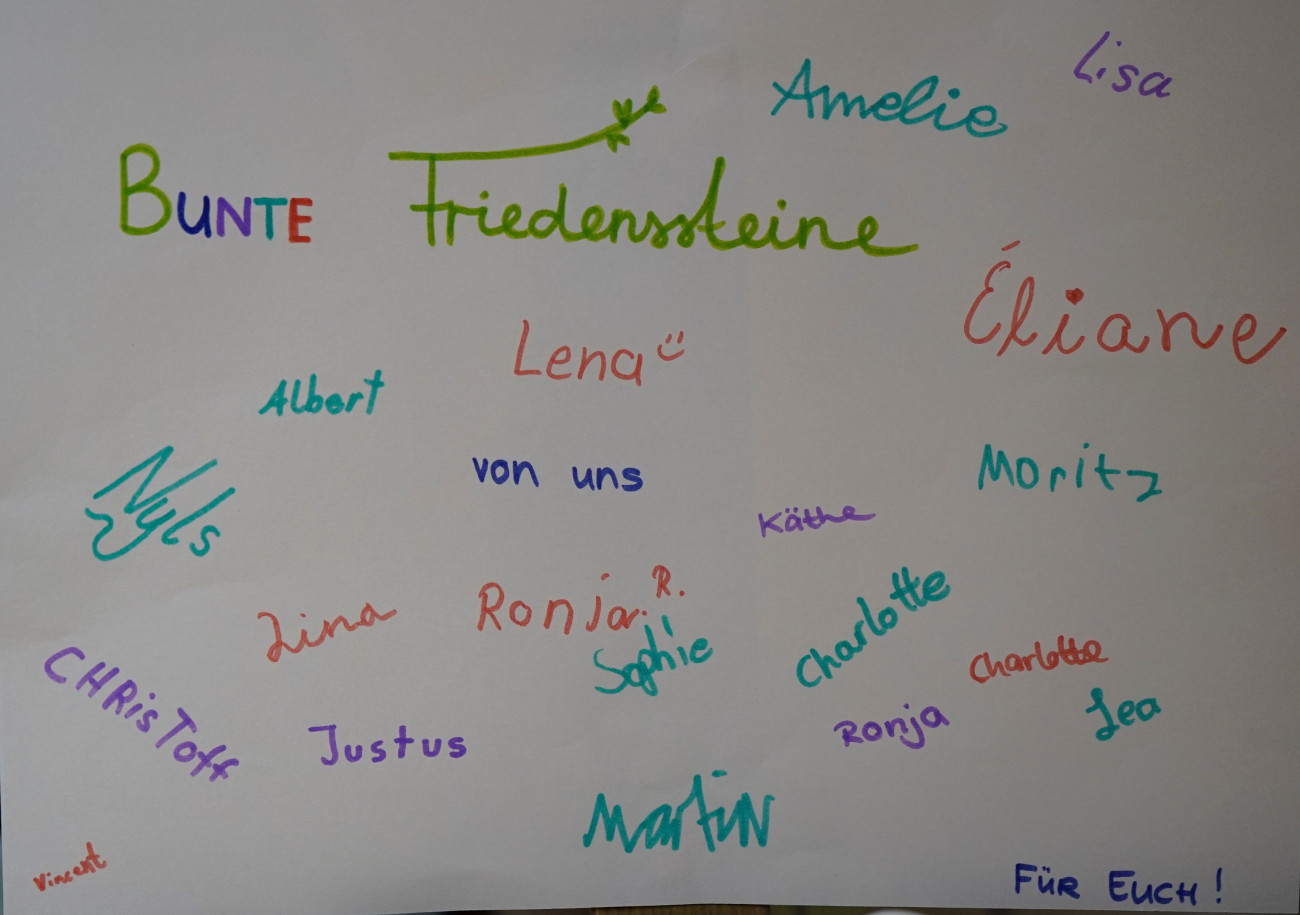 Lisa
Amelie
BUNTE Friedenssteine
Éliane
Lena
Albert
von uns
Moritz
Nyls
Käthe
Lina
Ronja R.
Sophie
Charlotte
Charlotte
CHRisToff
Justus
Ronja
Lea
MartiN
Vincent
FÜR EUCH!